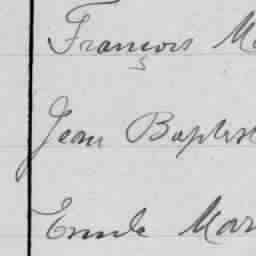 François M
Jean Baptis
Emile Mar